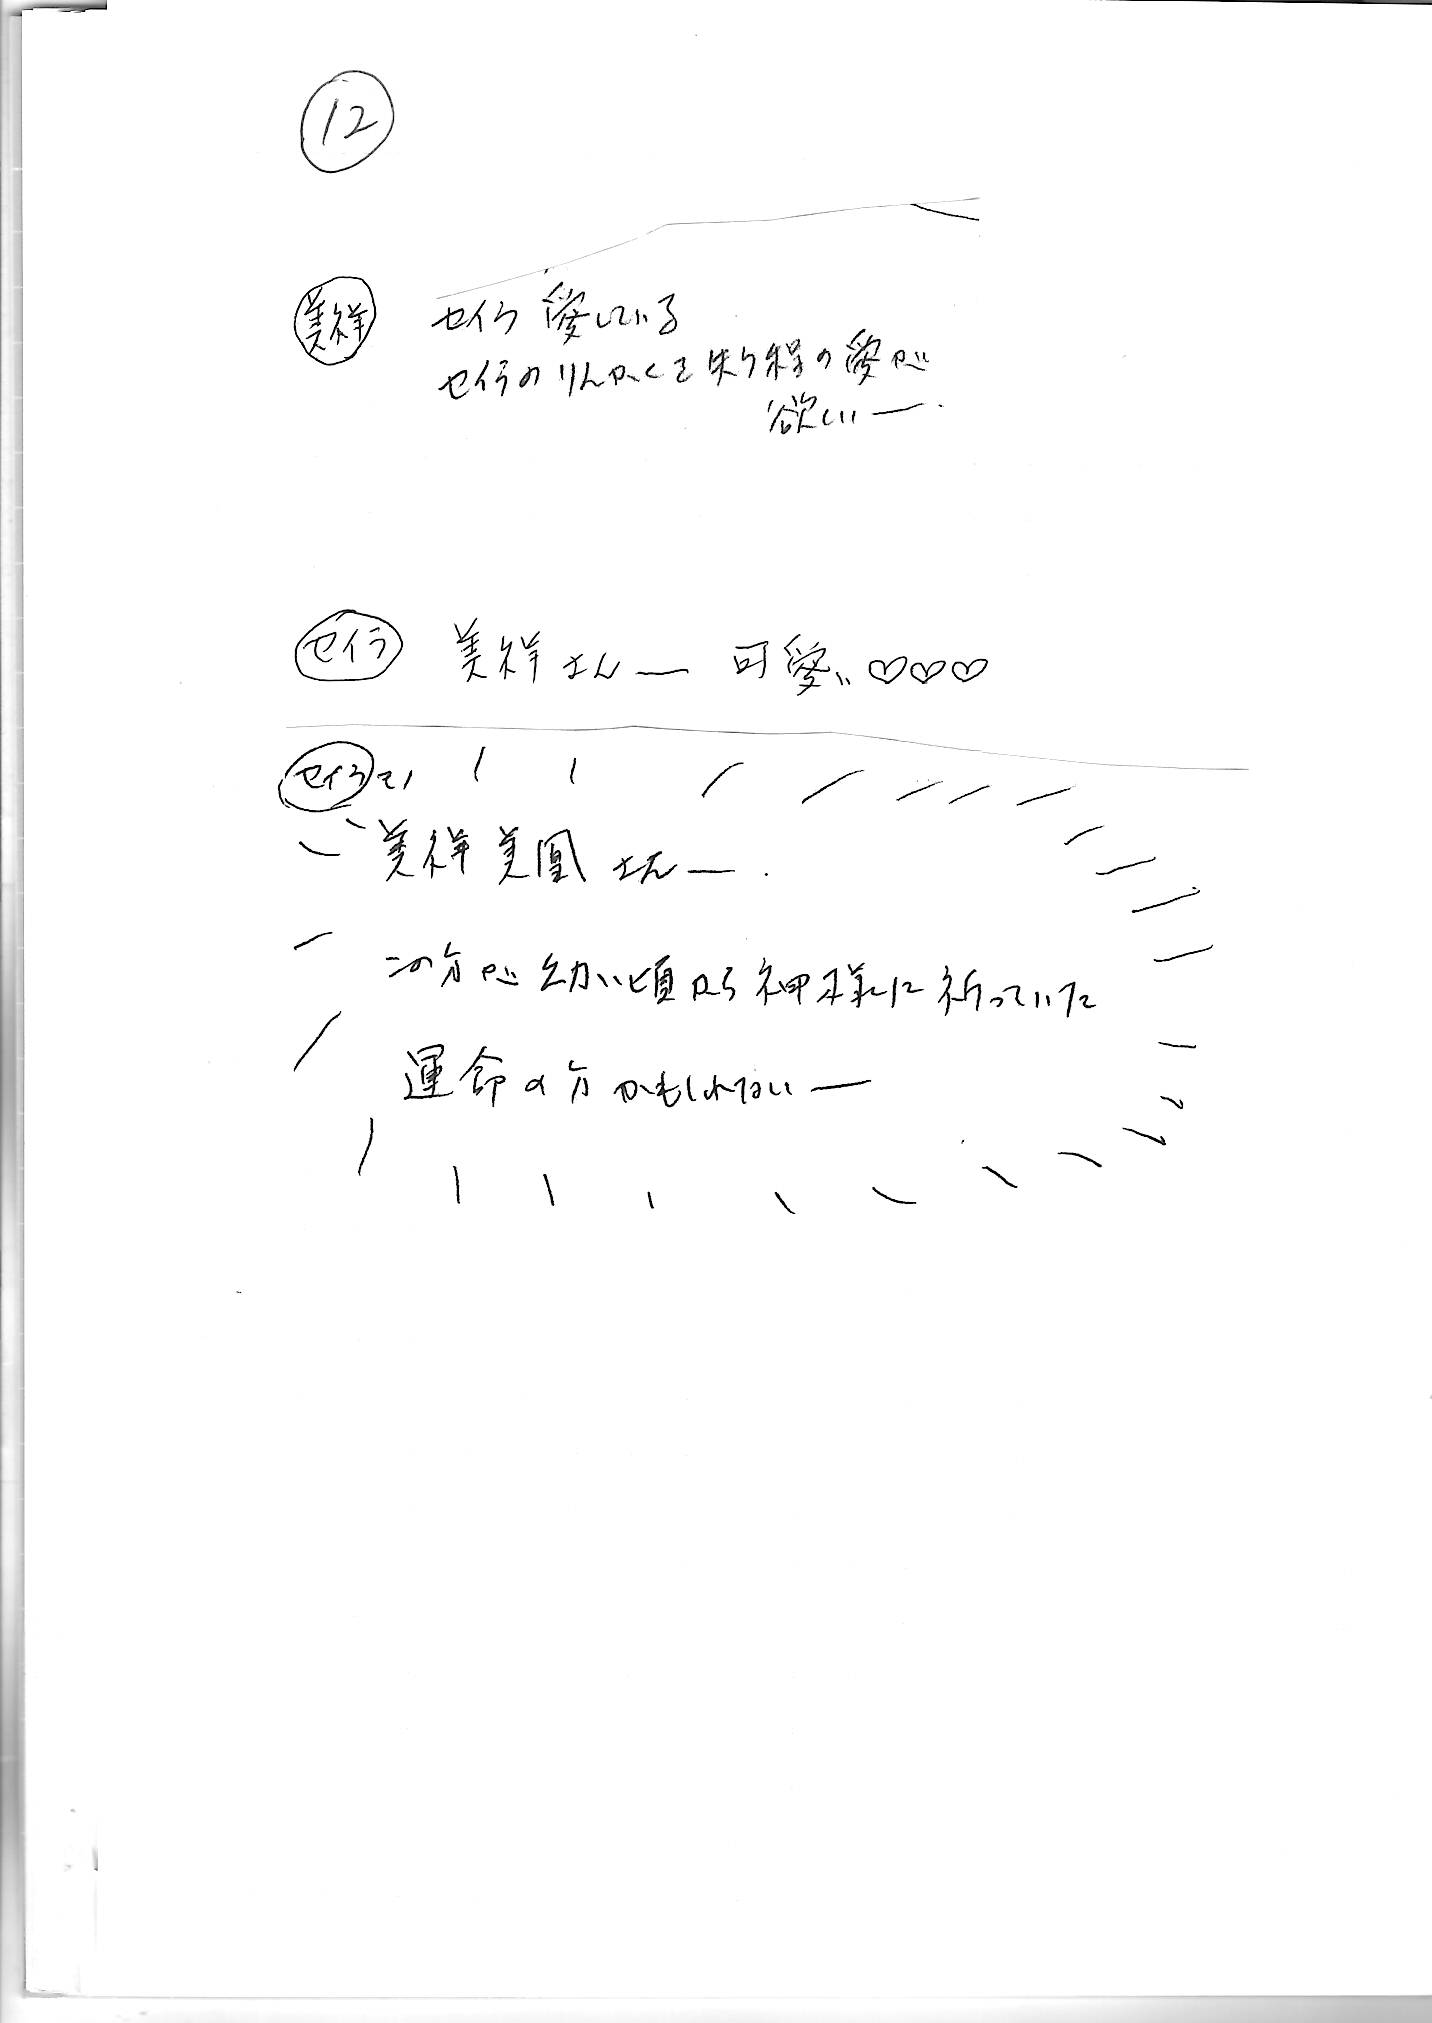 12
美祥 セイラ 愛している
セイラのりんかくを失う程の愛が
欲しいー.
セイラ 美祥さんー 可愛い♡♡♡
セイラ
美祥美凰さんー.
この方が幼い頃から神様に祈っていた
運命の方かもしれないー